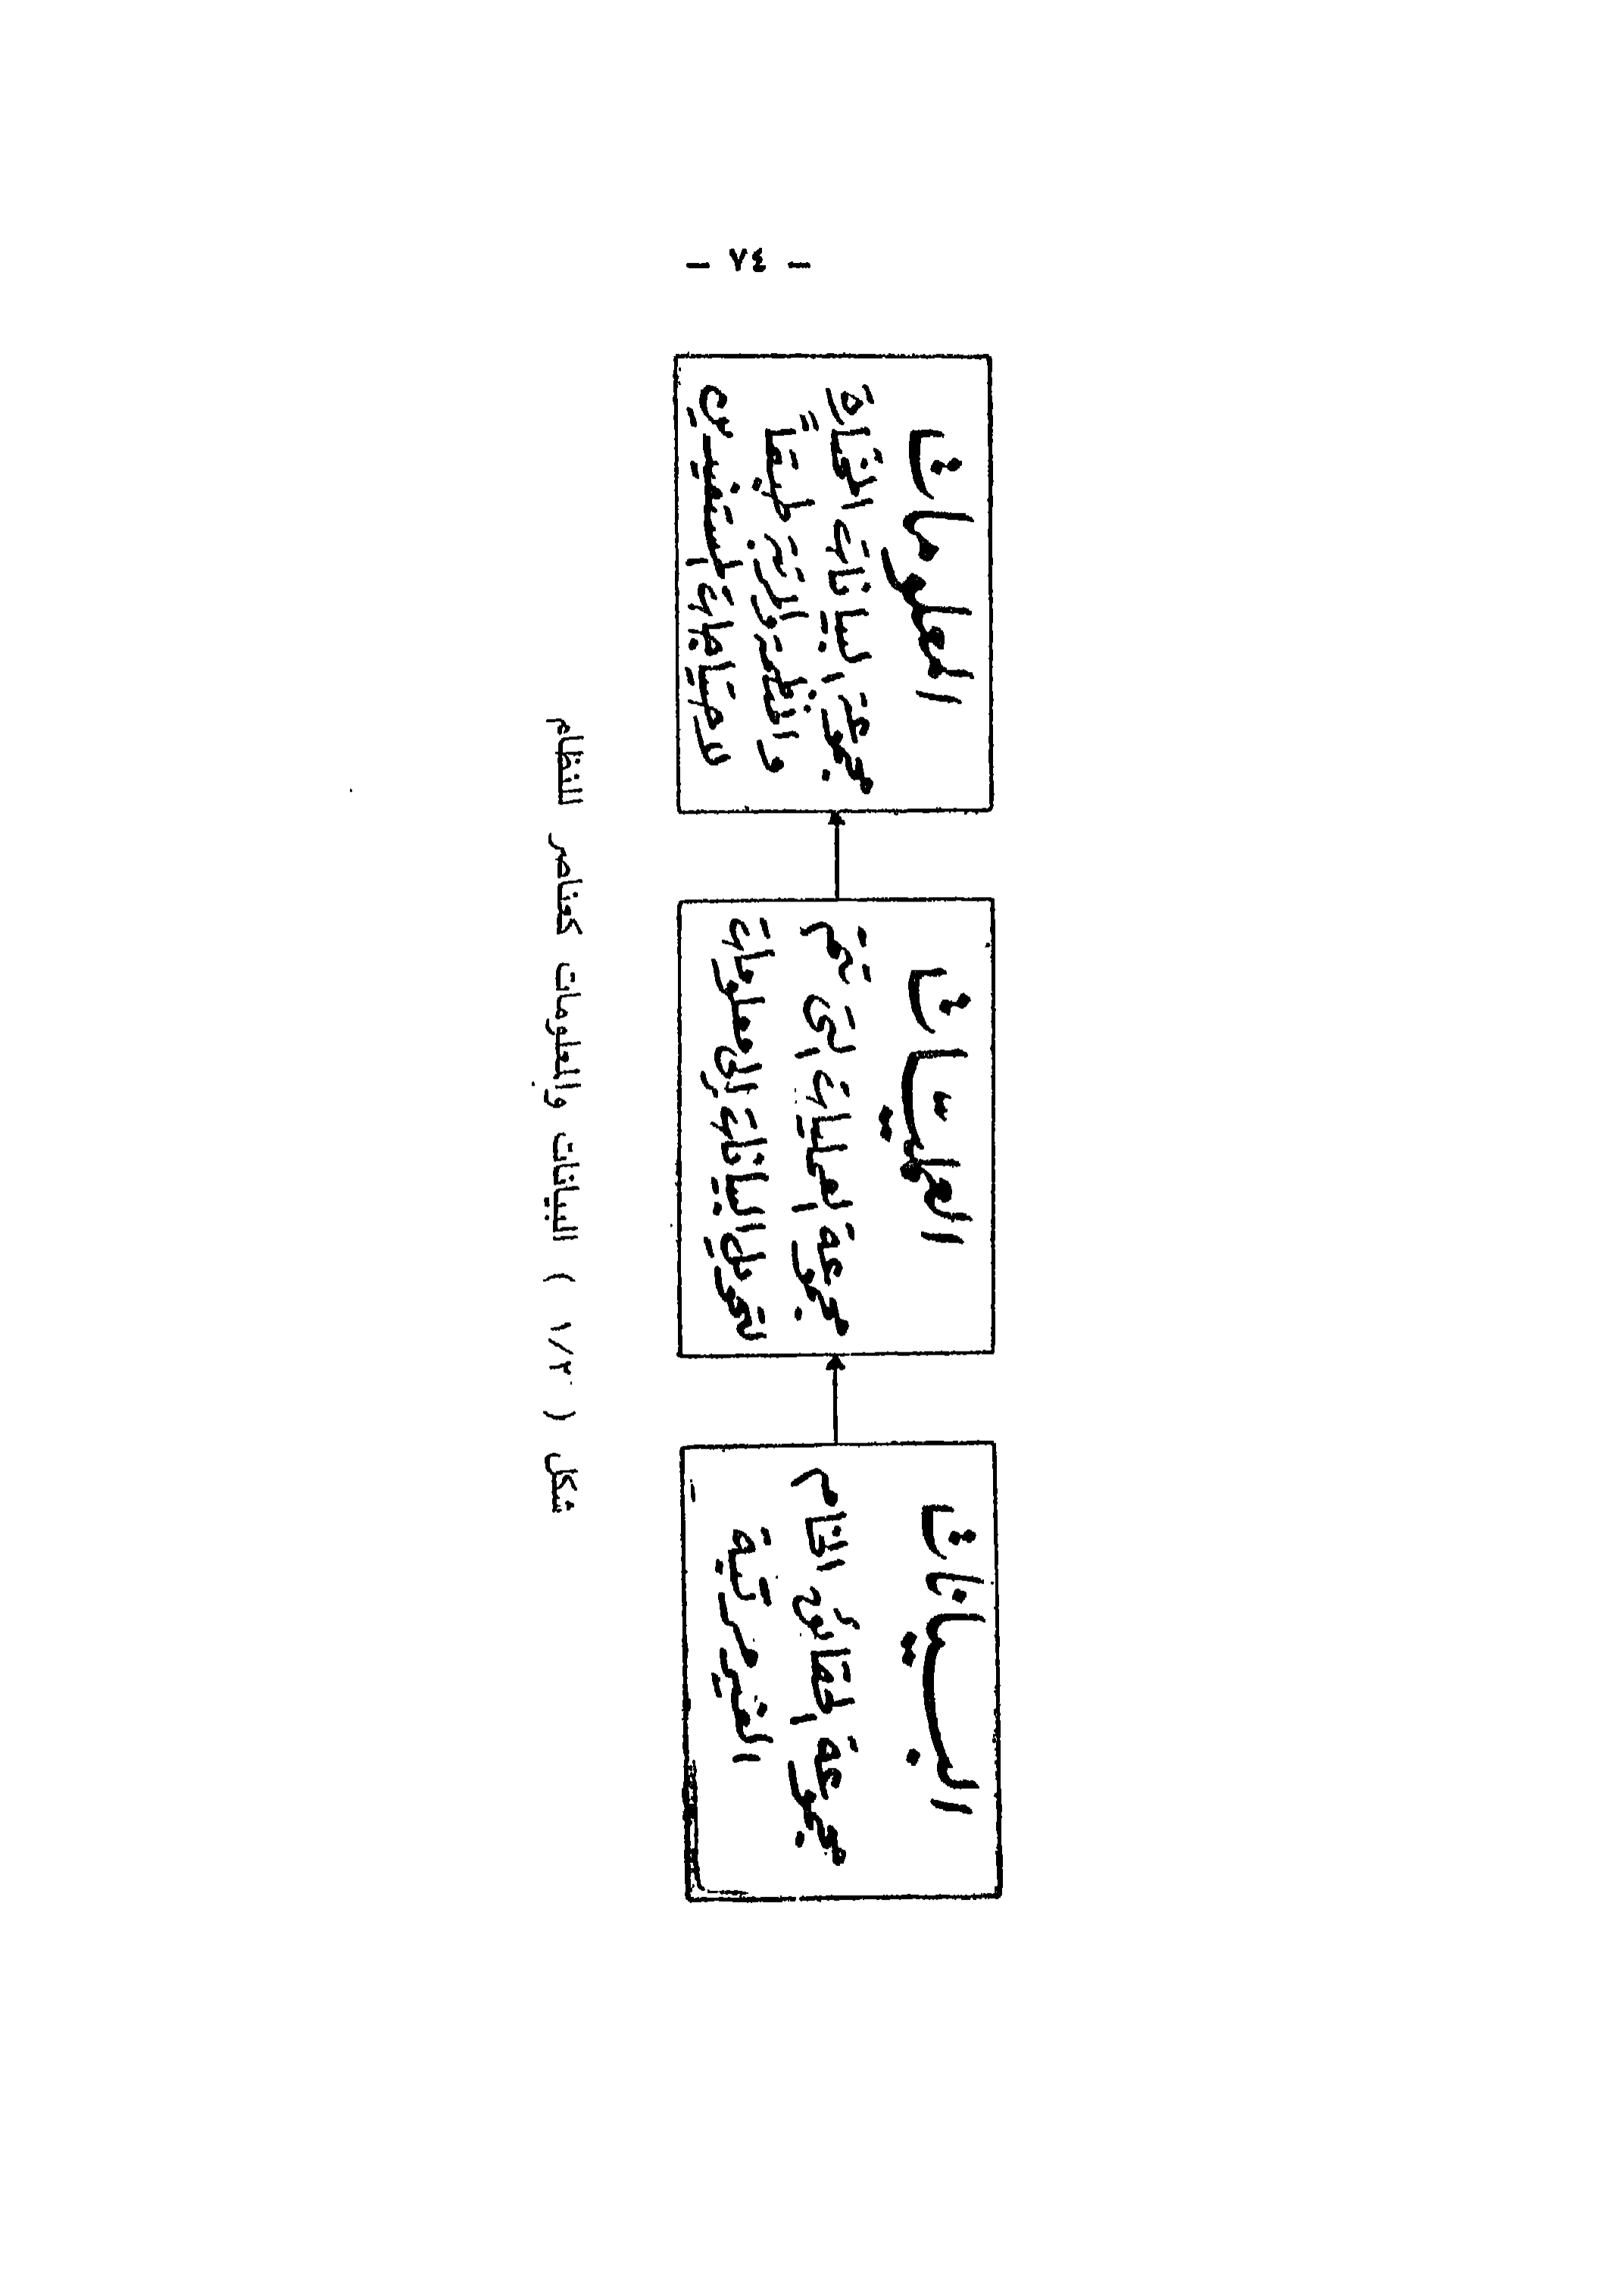 - ٧٤ -
البيانات
مجموعة الحقائق الخام
الغير مرتبة
العمليات
مجموعة العمليات التى تتم
لتحويل البيانات إلى معلومات
المعلومات
مجموعة البيانات المختارة
والمنظمة والمرتبة طبقاً
لاحتياجات المستفيدين
شكل ( ١/٢ ) البيانات والمعلومات كعناصر للنظام